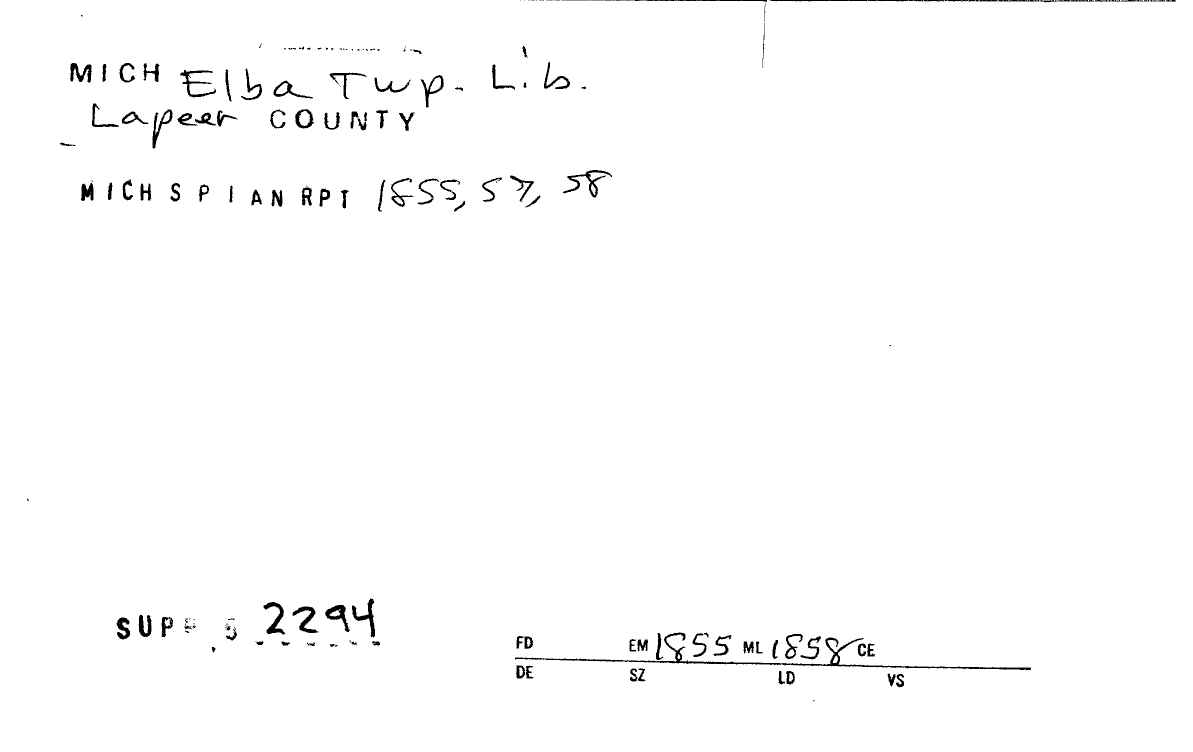 MICH Elba Twp. Lib.
Lapeer COUNTY
MICH S P I AN RPT 1855, 57, 58
SUPP 5 2294
FD EM 1855 ML 1858 CE
DE SZ LD VS